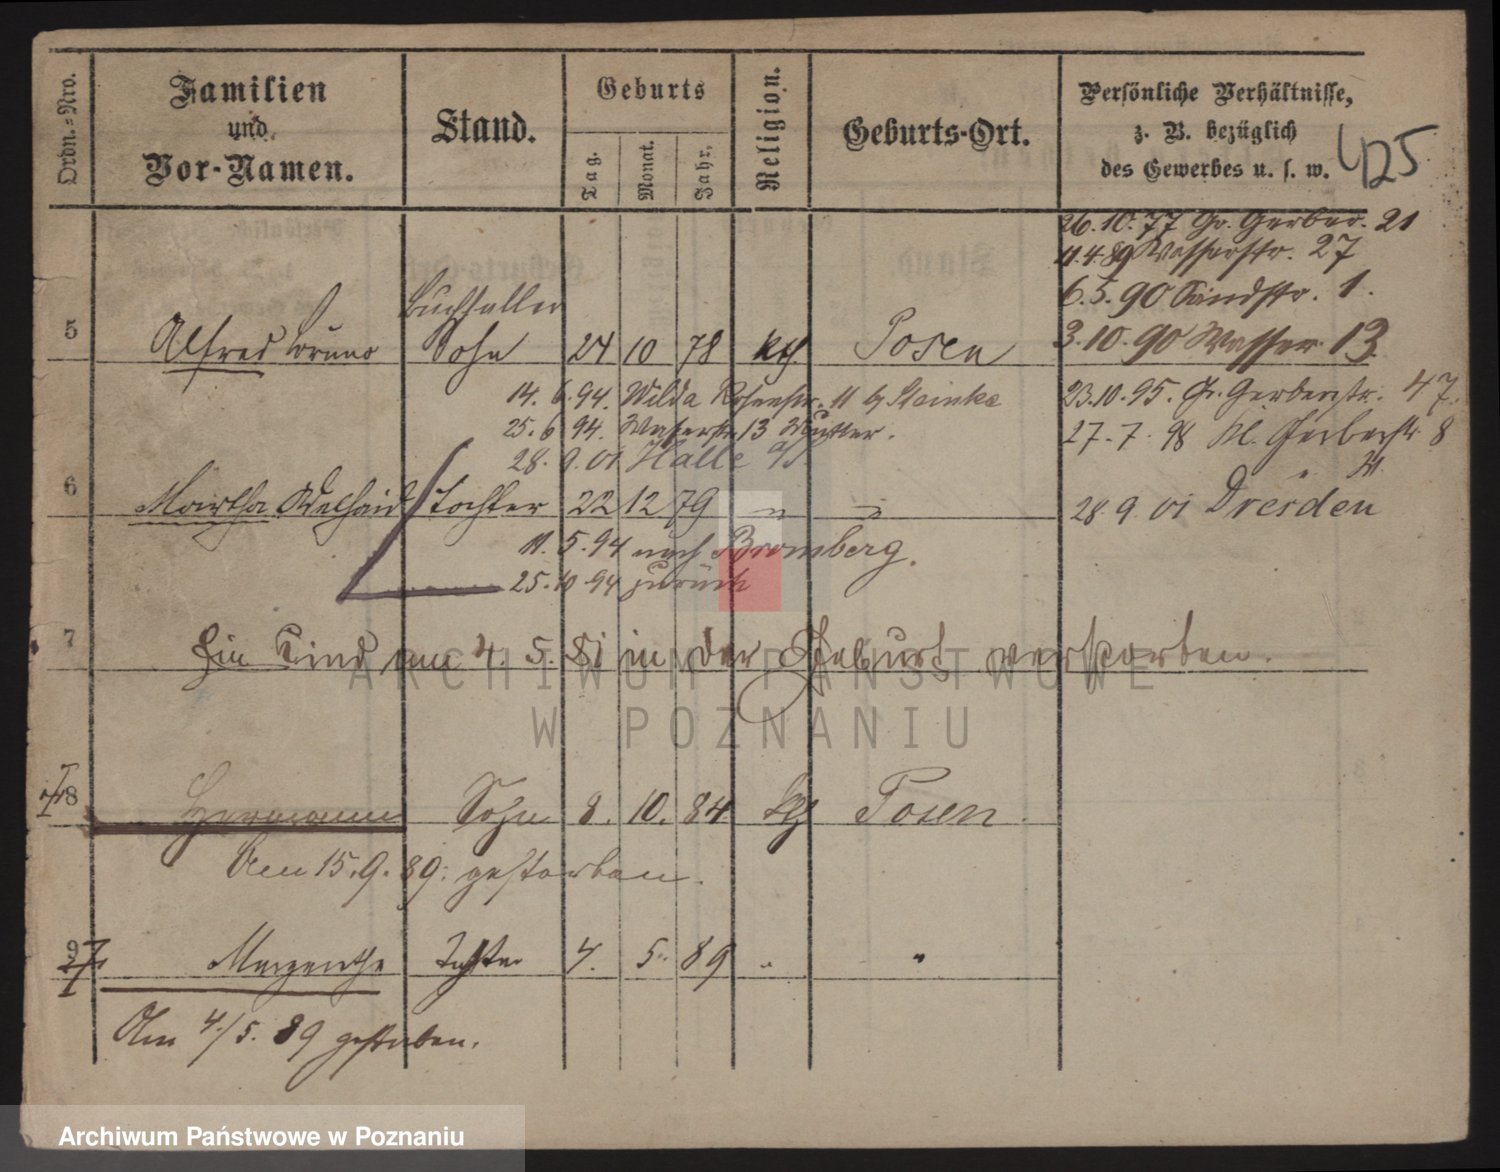 Ordn.-Nro.
Familien
und
Vor-Namen.
Stand.
Geburts
Tag.
Monat.
Jahr.
Religion.
Geburts-Ort.
Persönliche Verhältnisse,
z. B. bezüglich
des Gewerbes u. s. w.
425
26.10.77 Gr. Gerber. 21
11.4.89 Wasserstr. 27
6.5.90 Sandstr. 1.
Buchhalter
5 Alfred Bruno Sohn 24 10 78 kth Posen
3.10.90 Wasser 13.
14. 6. 94. Wilda Rosenstr. 11 b/ Steinke
23.10.95. Gr. Gerberstr. 47.
25. 6 94. Wasserstr. 13 Mutter.
27. 7. 98 Kl. Gerberstr. 8
28. 9. 01 Halle a/S.
6 Martha Adelhaid Tochter 22 12 79 " "
28. 9. 01 Dresden
11. 5. 94 nach Bromberg.
25. 10 94 zurück
7 Ein Kind am 4. 5. 81 in der Geburt verstorben.
8 Hermann Sohn 8. 10. 84 kth Posen.
Am 15. 9. 89. gestorben.
9 Margarethe Tochter 4. 5. 89 " "
Am 4./5. 89 gestorben.
ARCHIWUM PAŃSTWOWE
W POZNANIU
Archiwum Państwowe w Poznaniu